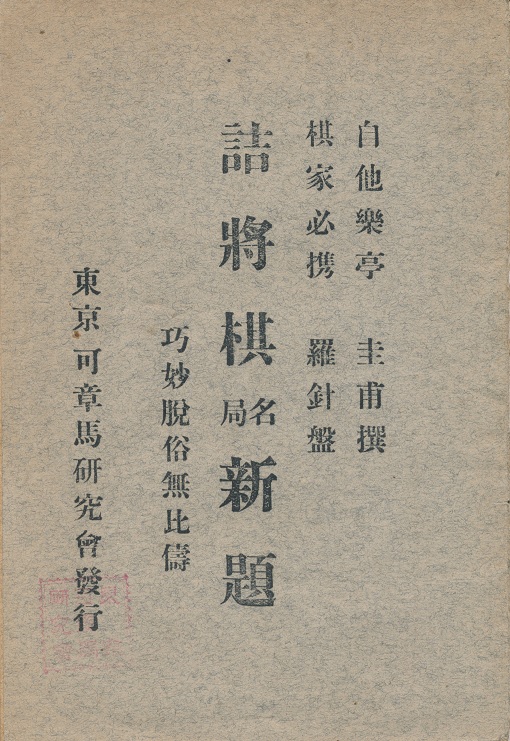 自他樂亭 圭甫撰
棋家必携 羅針盤
詰將棋名局新題
巧妙脫俗無比儔
東京可章馬研究會發行